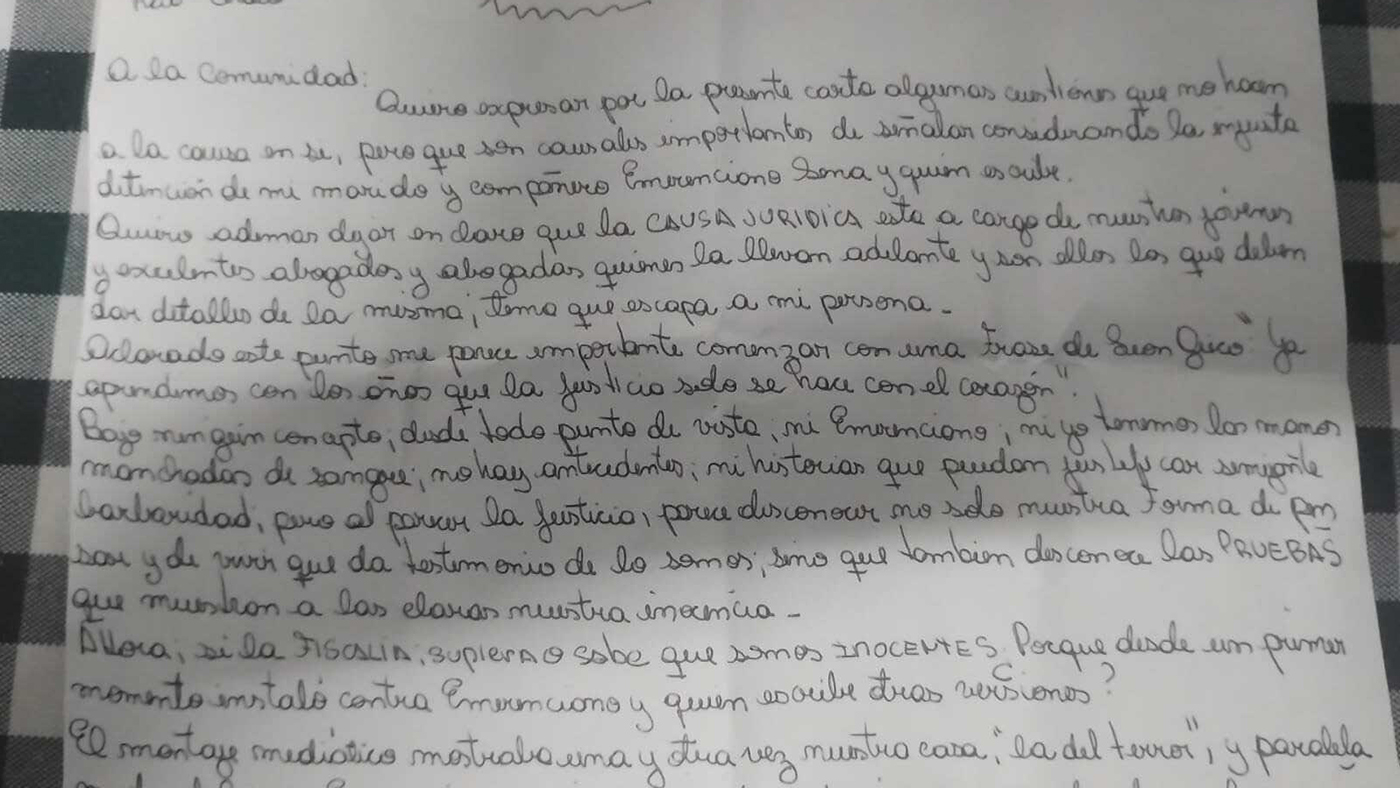 A la Comunidad:
Quiero expresar por la presente carta algunas cuestiones que no hacen
a la causa en si, pero que son causales importantes de señalar considerando la injusta
detención de mi marido y compañero Emerenciano Sena y quien escribe.
Quiero ademas dejar en claro que la CAUSA JURIDICA esta a cargo de nuestros jóvenes
y excelentes abogados y abogadas quienes la llevan adelante y son ellos los que deben
dar detalles de la misma; tema que escapa a mi persona.
Aclarado este punto me parece importante comenzar con una frase de "Ya
aprendimos con los años que la justicia solo se hace con el corazón".
Bajo ningún concepto, desde todo punto de vista, ni Emerenciano, ni yo tenemos las manos
manchadas de sangre, no hay antecedentes, ni historias que puedan justificar semejante
barbaridad, pero al parecer la justicia, parece desconocer no solo nuestra forma de pen
sar y de vivir que da testimonio de lo somos, sino que tambien desconoce las PRUEBAS
que muestran a las claras nuestra inocencia.
Ahora, si la FISCALIA, SUPIERA O sabe que somos INOCENTES. Porque desde un primer
momento instaló contra Emerenciano y quien escribe otras versiones?
El montaje mediático mostraba una y otra vez nuestra casa, "la del terror", y paralela